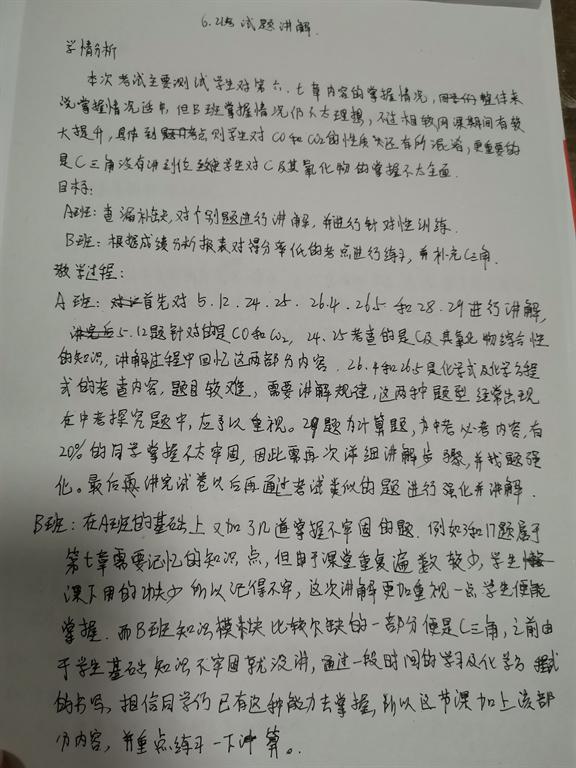 6.2 试题讲解.
学情分析
本次考试主要测试学生对第六、七章内容的掌握情况, 整体来
说掌握情况适中, 但B班掌握情况仍不太理想, 不过相较网课期间有较
大提升, 具体到考点则学生对CO和CO₂的性质还有所混淆, 更重要的
是C三角没有讲到位 学生对C及其氧化物的掌握不太全面.
目标:
A班: 查漏补缺, 对个别题进行讲解, 并进行针对性训练.
B班: 根据成绩分析报表对得分率低的考点进行练习, 并补充C三角.
教学过程:
A班: 首先对5.12.24.25. 26.4. 26.5 和28.29进行讲解,
5.12题针对的是CO和CO₂, 24.25考查的是C及其氧化物综合性
的知识, 讲解过程中回忆这两部分内容. 26.4和26.5是化学式及化学方程
式的考查内容, 题目较难, 需要讲解规律, 这两种题型经常出现
在中考探究题中, 应予以重视. 29题为计算题, 为中考必考内容, 有
20%的同学掌握不太牢固, 因此需再次详细讲解步骤, 并找题强
化。最后讲完试卷以后再通过考试类似的题进行强化并讲解.
B班: 在A班的基础上又加了几道掌握不牢固的题. 例如 和17题属于
第七章需要记忆的知识点, 但由于课堂重复遍数较少, 学生
课下用的功夫少 所以记得不牢, 这次讲解更加重视一点学生便能
掌握. 而B班知识模块比较欠缺的一部分便是C三角, 之前由
于学生基础知识不牢固就没讲, 通过一段时间的学习及化学方程式
的书写, 相信同学们已有这种能力去掌握, 所以这节课加上该部
分内容, 并重点练习一下计算。